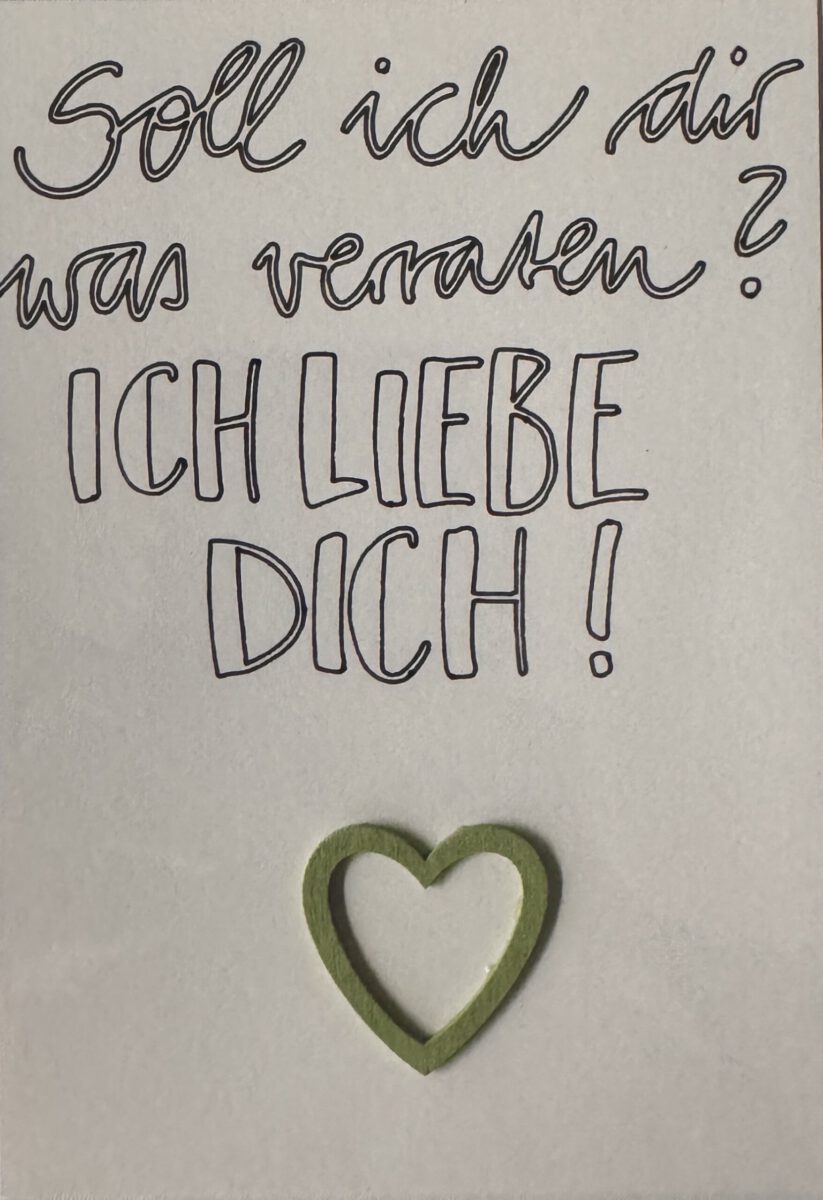 Soll ich dir
was verraten?
ICH LIEBE
DICH!